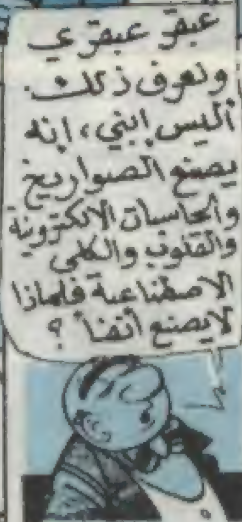 عبقر عبقري
ونعرف ذلك.
أليس إبني، إنه
يصنع الصواريخ
والحاسبات الالكترونية
والقلوب والكلى
الاصطناعية فلماذا
لايصنع أنفاً ؟